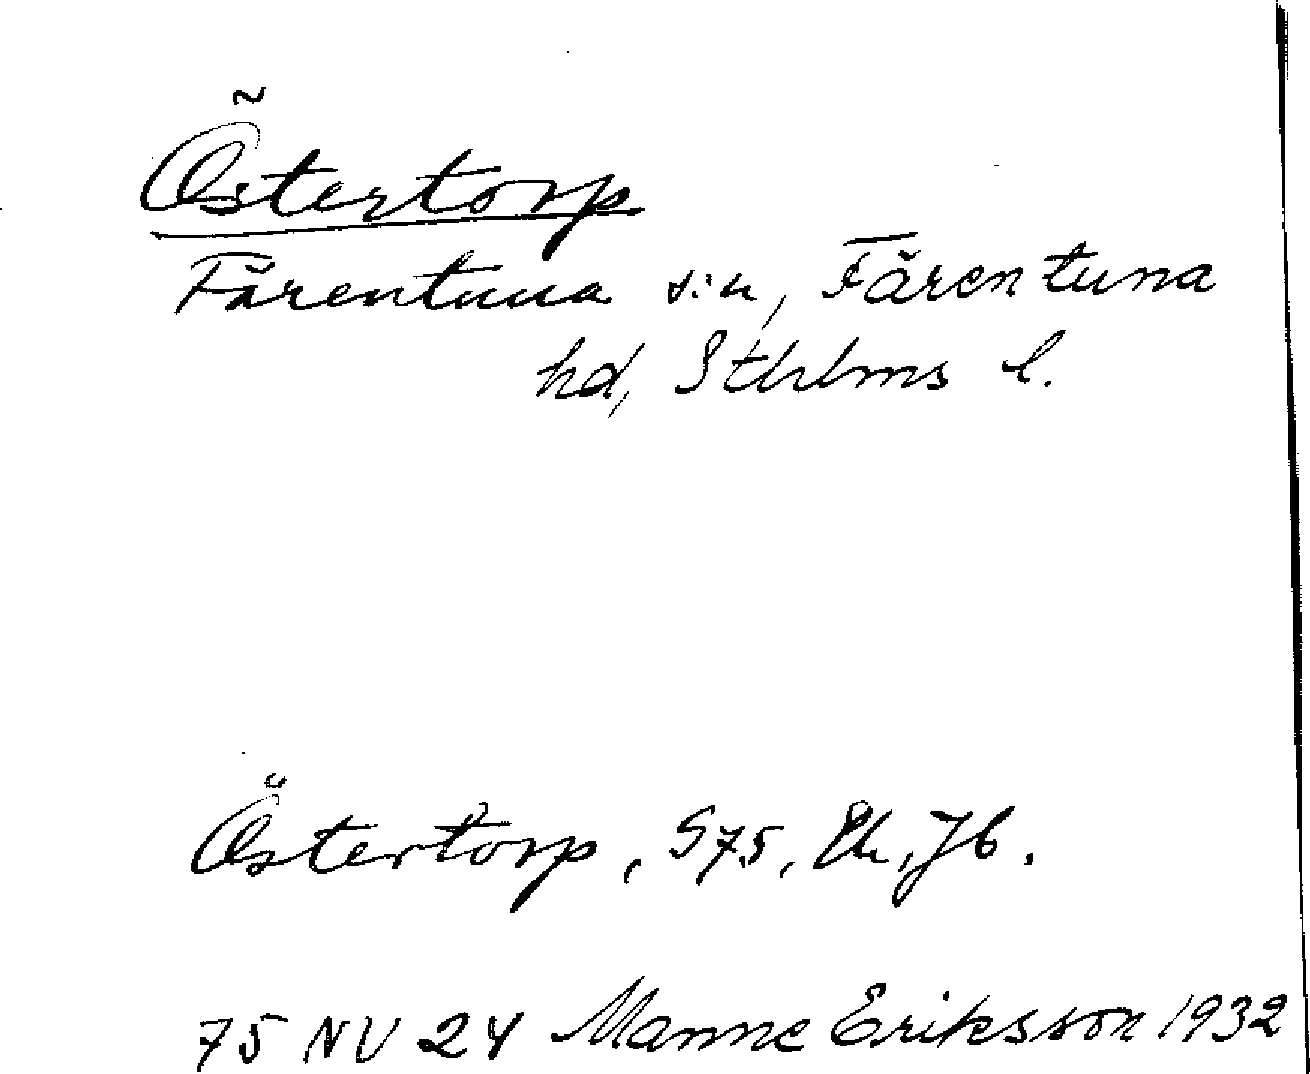 Östertorp
Färentuna s:n, Färentuna
hd, Sthlms l.
Östertorp, S75, Ek, Jb.
75 NV 24 Manne Eriksson 1932